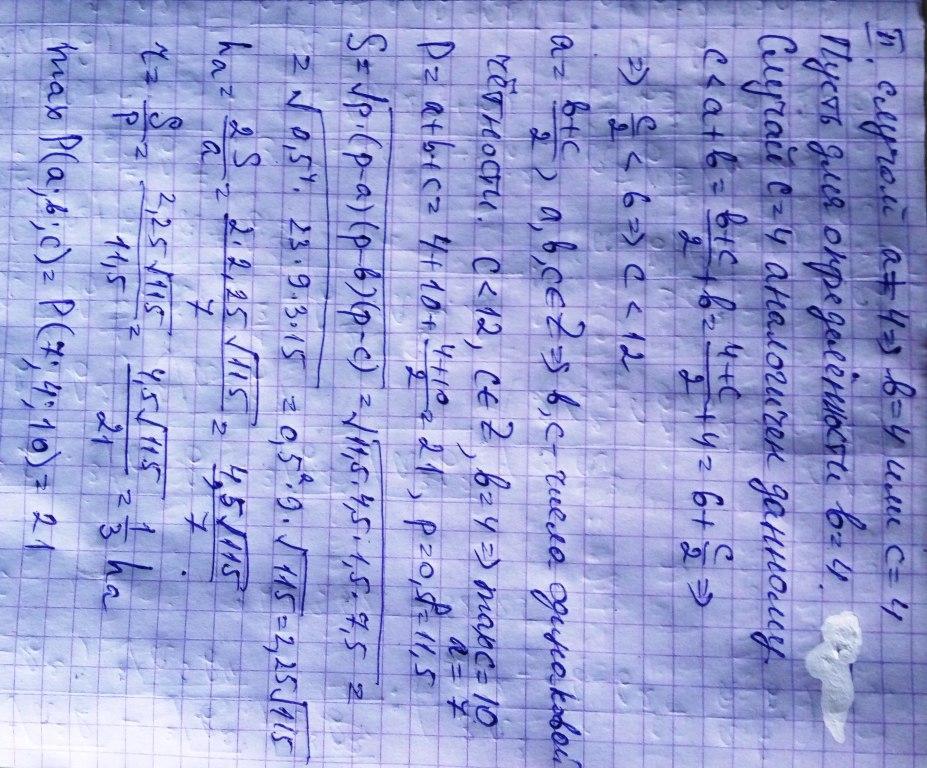 II. случай a≠4 => b=4 или c=4
Пусть для определённости b=4.
Случай c=4 аналогичен данному
c<a+b= (b+c)/2 + b= (4+c)/2 + 4= 6+ c/2 =>
=> c/2 < 6 => c < 12
a= (b+c)/2, a,b,c∈Z => b,c - числа одинаковой
чётности. c<12, c∈Z, b=4 => max c=10
a=7
P=a+b+c= 4+10+ (4+10)/2 = 21, p=0,5P=11,5
S=√(p·(p-a)(p-b)(p-c)) = √(11,5·4,5·1,5·7,5) =
= √(0,5⁴· 23·9·3·15) = 0,5²·9·√115=2,25√115
hₐ= 2S/a = (2·2,25√115)/7 = (4,5√115)/7
r= S/p = (2,25√115)/11,5 = (4,5√115)/21 = 1/3 hₐ
max P(a;b;c)= P(7;4;10)= 21